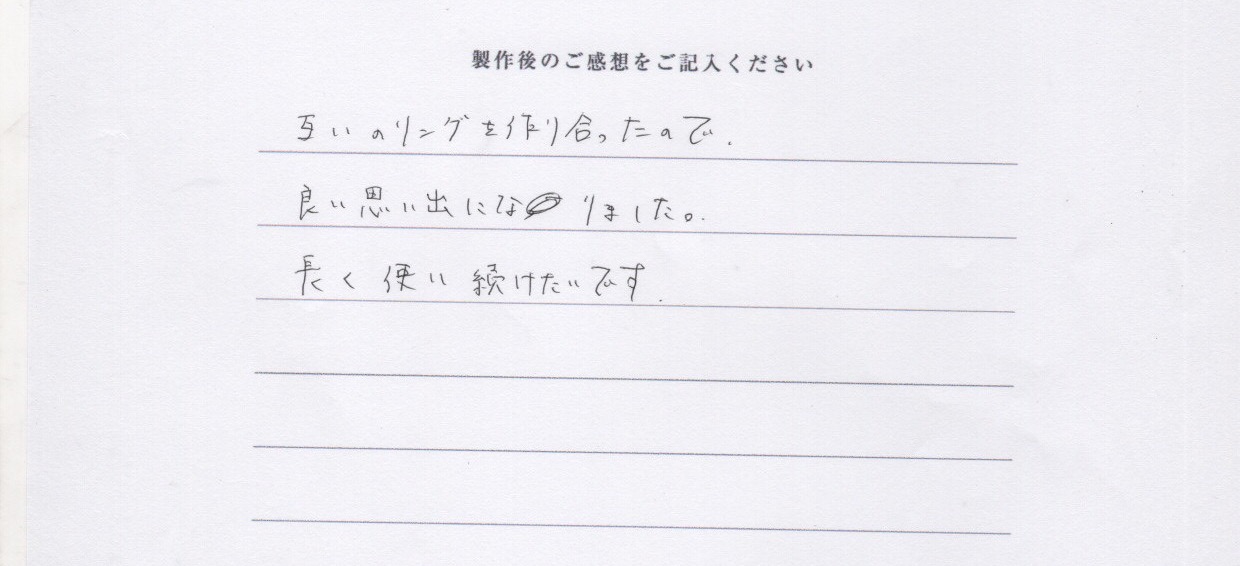 製作後のご感想をご記入ください
互いのリングを作り合ったので.
良い思い出になりました。
長く使い続けたいです.